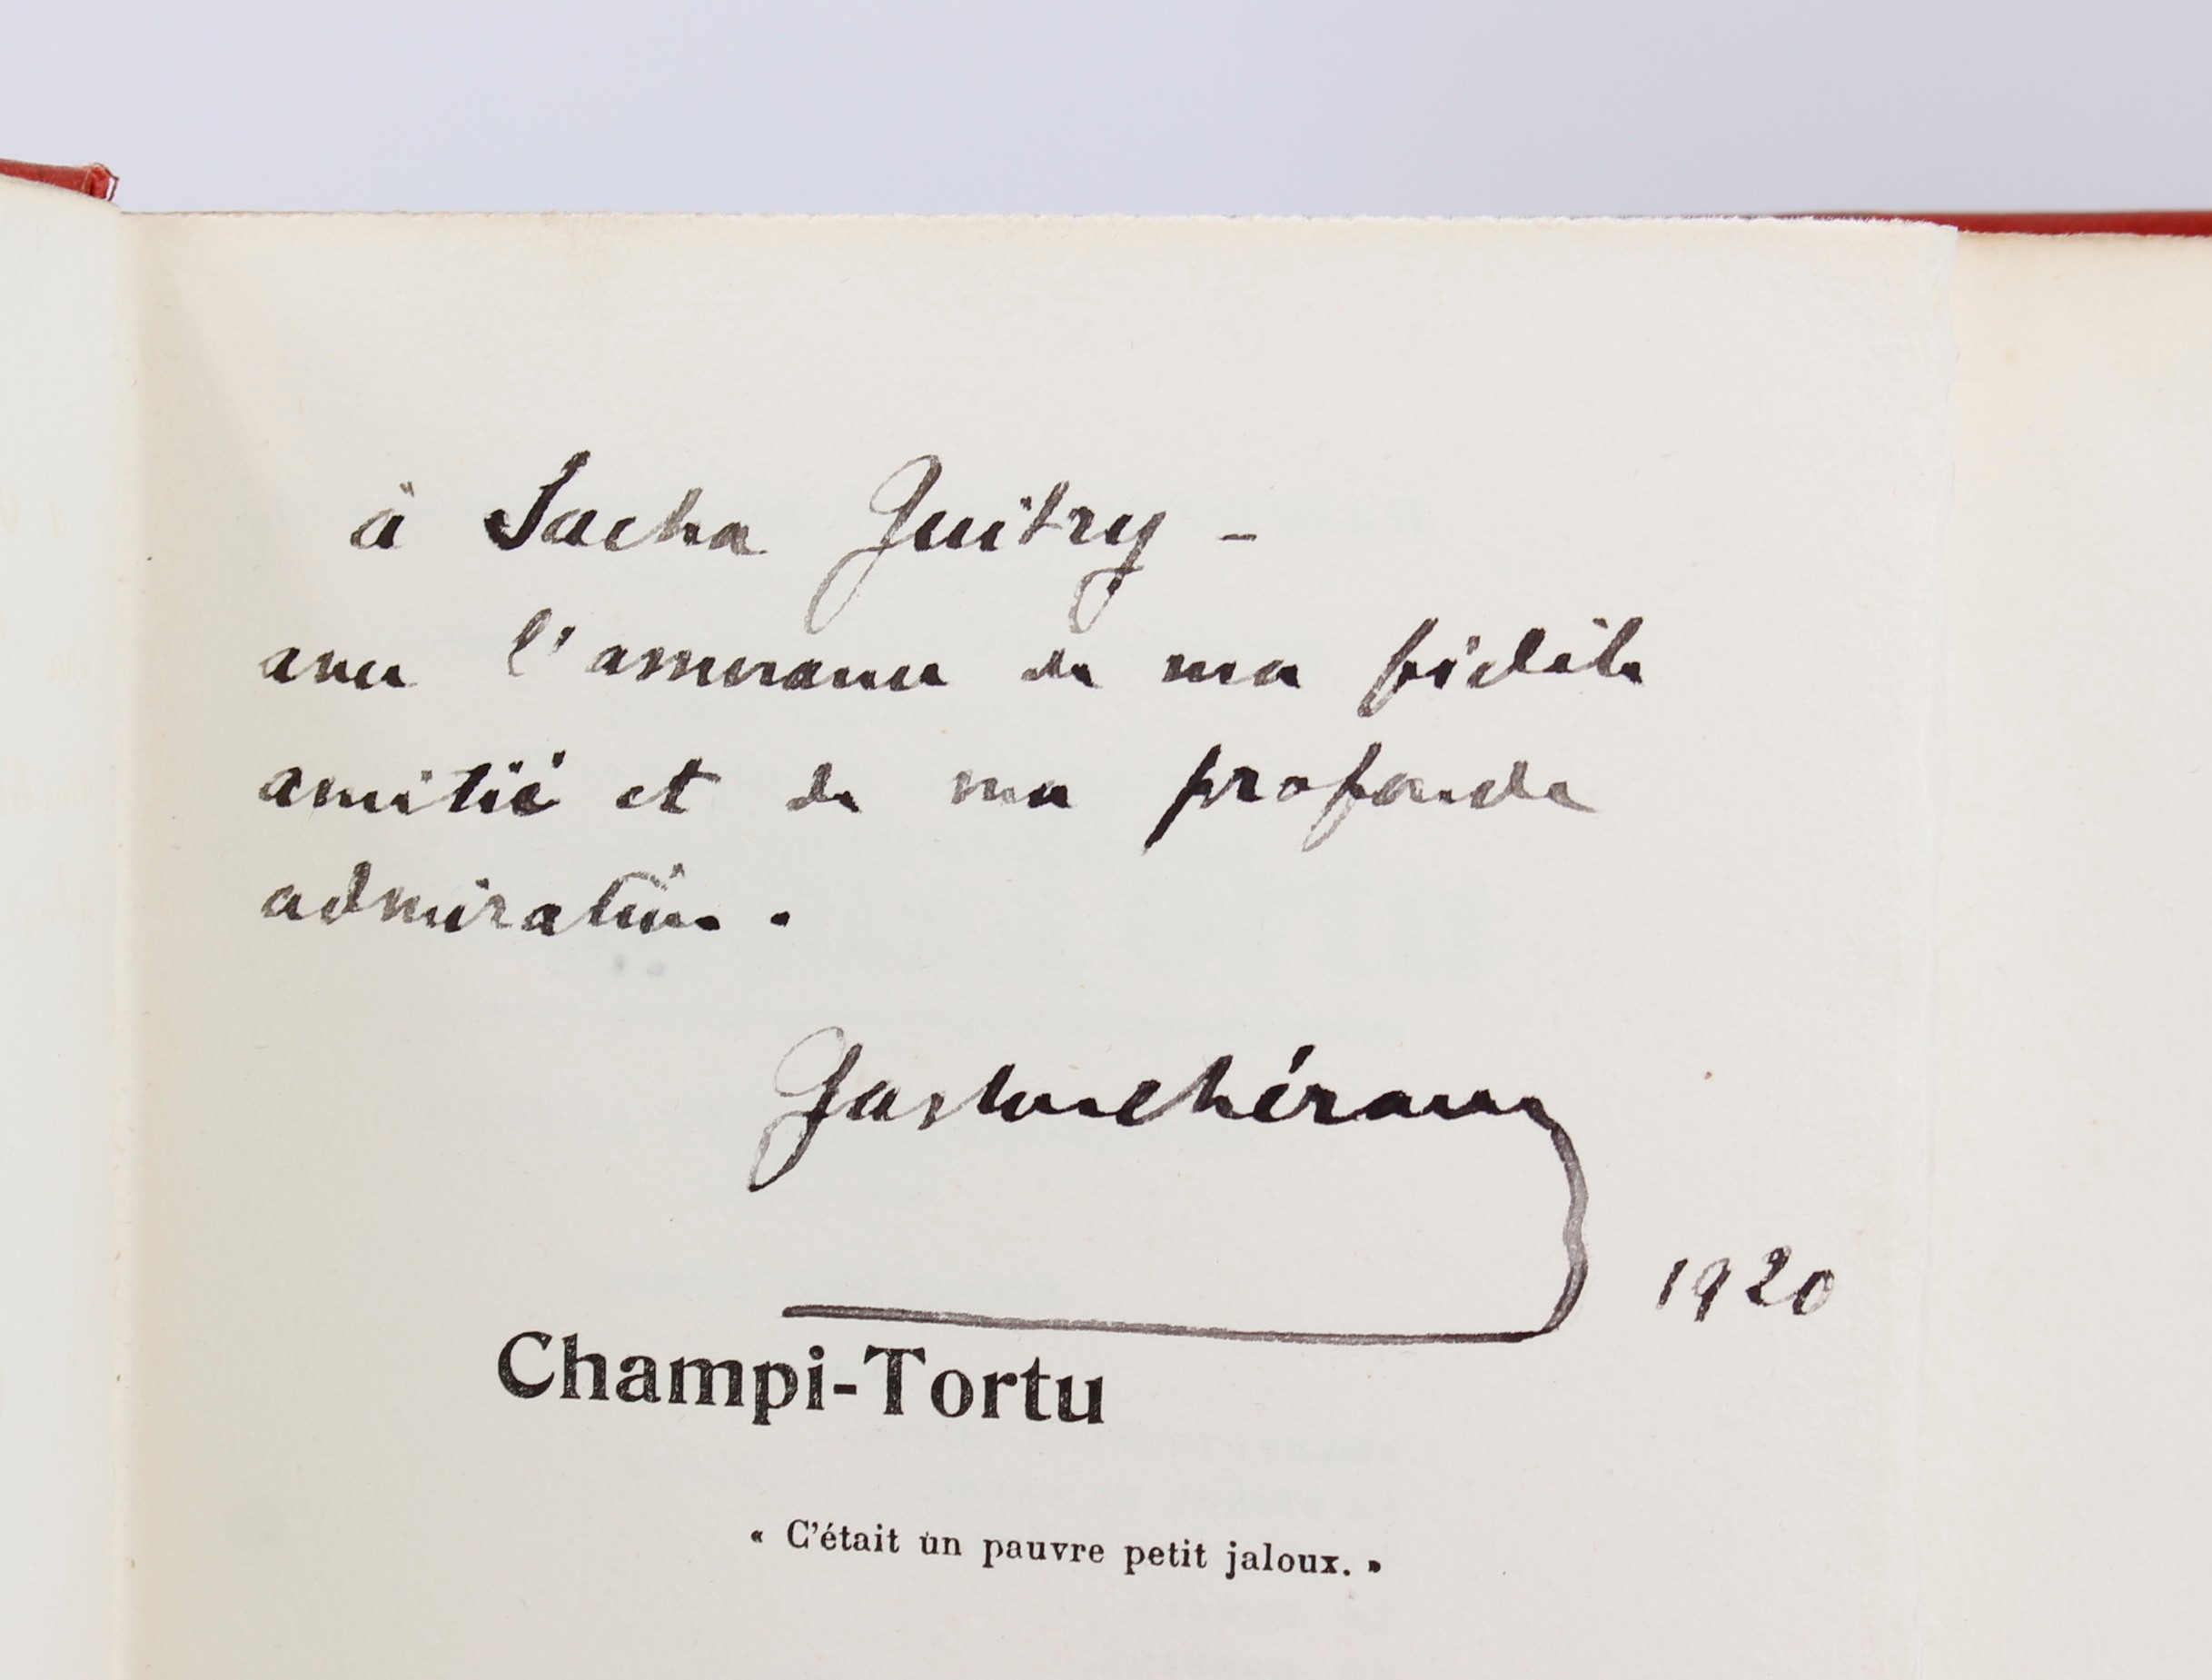 à Sacha Guitry –
avec l'assurance de ma fidèle
amitié et de ma profonde
admiration.
Gaston Chérau
1920
Champi-Tortu
« C'était un pauvre petit jaloux. »